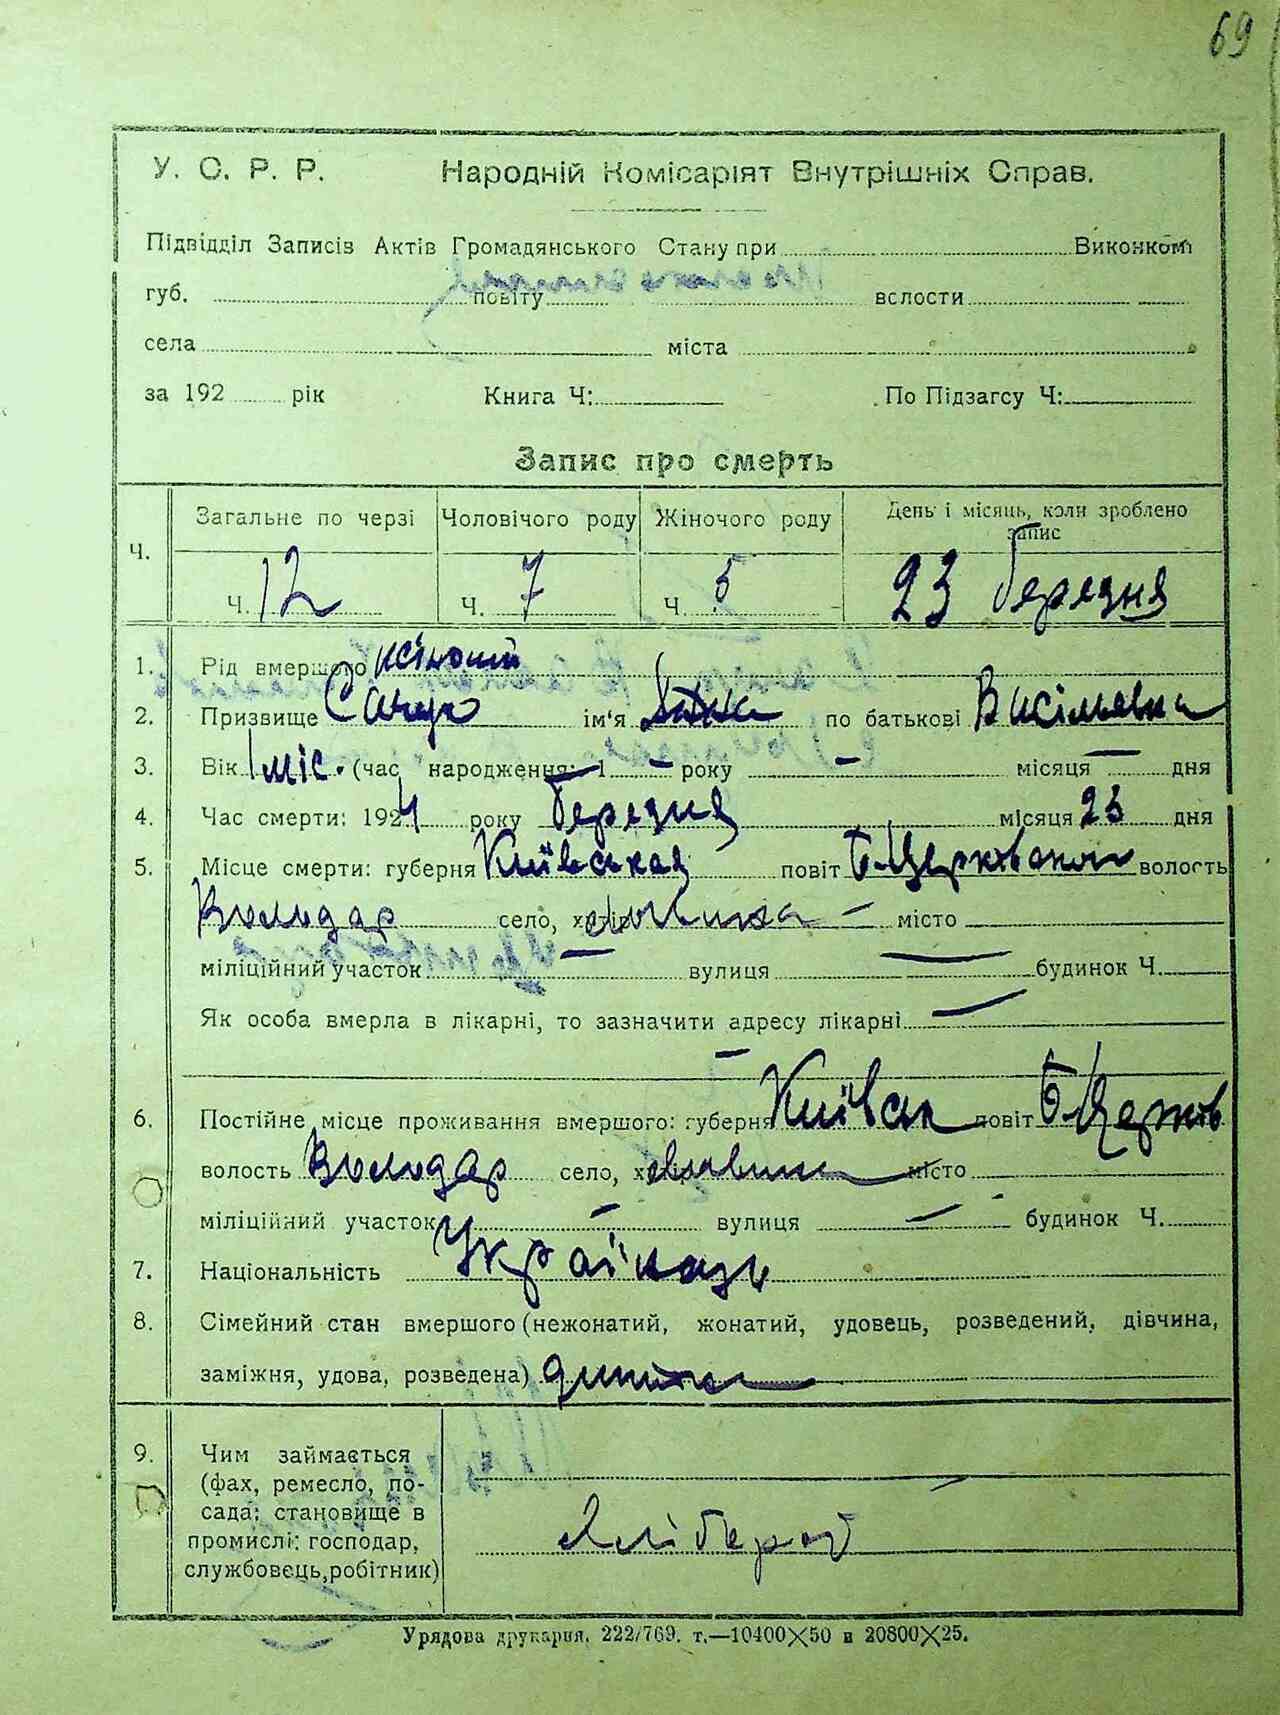 69
У. С. Р. Р. Народній Комісаріят Внутрішніх Справ.
Підвідділ Записів Актів Громадянського Стану при Виконком
губ. повіту вслости
села міста
за 192 рік Книга Ч: По Підзагсу Ч:
Запис про смерть
Ч. Загальне по черзі Чоловічого роду Жіночого роду День і місяць, коли зроблено запис
Ч. 12 Ч. 7 Ч. 5 23 березня
1. Рід вмершого жіночий
2. Призвище ім'я по батькові
3. Вік 1 міс. (час народження: 1 – року – місяця – дня
4. Час смерти: 1924 року березня місяця 23 дня
5. Місце смерти: губерня Київська повіт Б-Церківський волость
Володар село, хутір місто
міліційний участок – вулиця – будинок Ч.
Як особа вмерла в лікарні, то зазначити адресу лікарні –
6. Постійне місце проживання вмершого: губерня Київськ повіт Б-Церків
волость Володар село, хутір місто
міліційний участок – вулиця – будинок Ч.
7. Національність Українць
8. Сімейний стан вмершого (нежонатий, жонатий, удовець, розведений, дівчина,
заміжня, удова, розведена) дитина
9. Чим займається
(фах, ремесло, по-
сада; становище в
промислі: господар,
службовець, робітник) Хлібороб
Урядова друкарня. 222/769. т.—10400×50 и 20800×25.